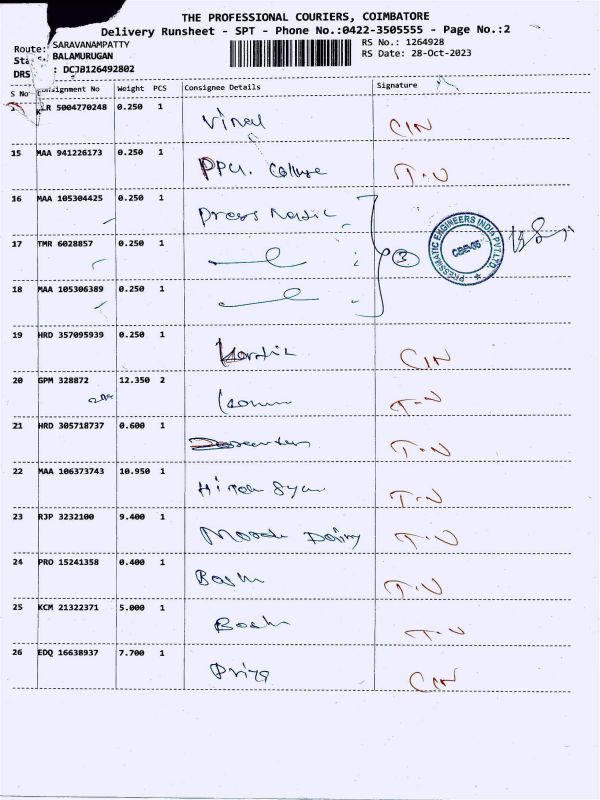 THE PROFESSIONAL COURIERS, COIMBATORE
Delivery Runsheet - SPT - Phone No.:0422-3505555 - Page No.:2
Route: SARAVANAMPATTY
RS No.: 1264928
BALAMURUGAN
RS Date: 28-Oct-2023
DRS : DCJB126492802
S No Consignment No Weight PCS Consignee Details Signature
5004770248 0.250 1 CIN
15 MAA 941226173 0.250 1 PPG. College T.N
16 MAA 105304425 0.250 1
17 TMR 6028857 0.250 1 3 PRESSMATIC ENGINEERS INDIA PVT.LTD.
18 MAA 105306389 0.250 1
19 HRD 357095939 0.250 1 CIN
20 GPM 328872 12.350 2 T.N
21 HRD 305718737 0.600 1 T.N
22 MAA 106373743 10.950 1 T.N
23 RJP 3232100 9.400 1 T.N
24 PRO 15241358 0.400 1 T.N
25 KCM 21322371 5.000 1 T.N
26 EDQ 16638937 7.700 1 Priya CIN